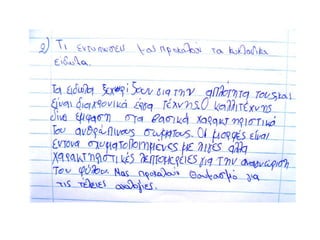 2) Τι εντυπωσεις μου προκαλουν τα κυκλαδικα
ειδωλα.
Τα ειδωλα ξεχωρίζουν για την απλότητα τους και
είναι διαχρονικά έργα τέχνης. Ο καλλιτέχνης
δινει έμφαση στα βασικά χαρακτηριστικά
του ανθρώπινου σωματους. Οι μορφές είναι
έντονα σχηματοποιημένες με λιγες αλλα
χαρακτηριστικές λεπτομέρειες για την αναγνώριση
του φύλου. Μας προκαλουν θαυμασμό για
τις τέλειες αναλογιες.